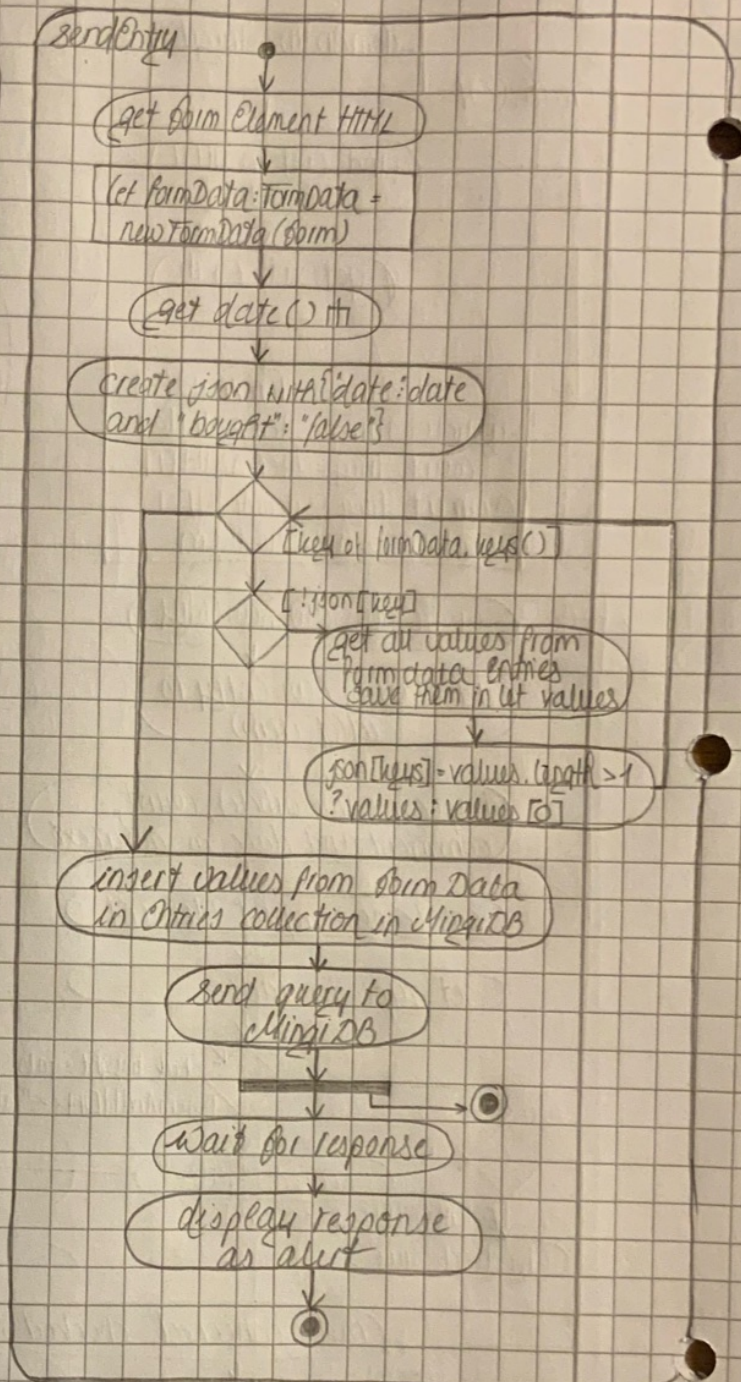 sendEntry
get form Element HTML
let formData:FormData =
new FormData(form)
get date()
create json with{"date:date
and "bought": "false"}
[key of formData.keys()]
[!json[key]
get all values from
formdata entries
save them in let values
json[keys]=values.length>1
?values:values[0]
insert values from form Data
in Entries collection in MingiDB
send query to
MingiDB
wait for response
display response
as alert